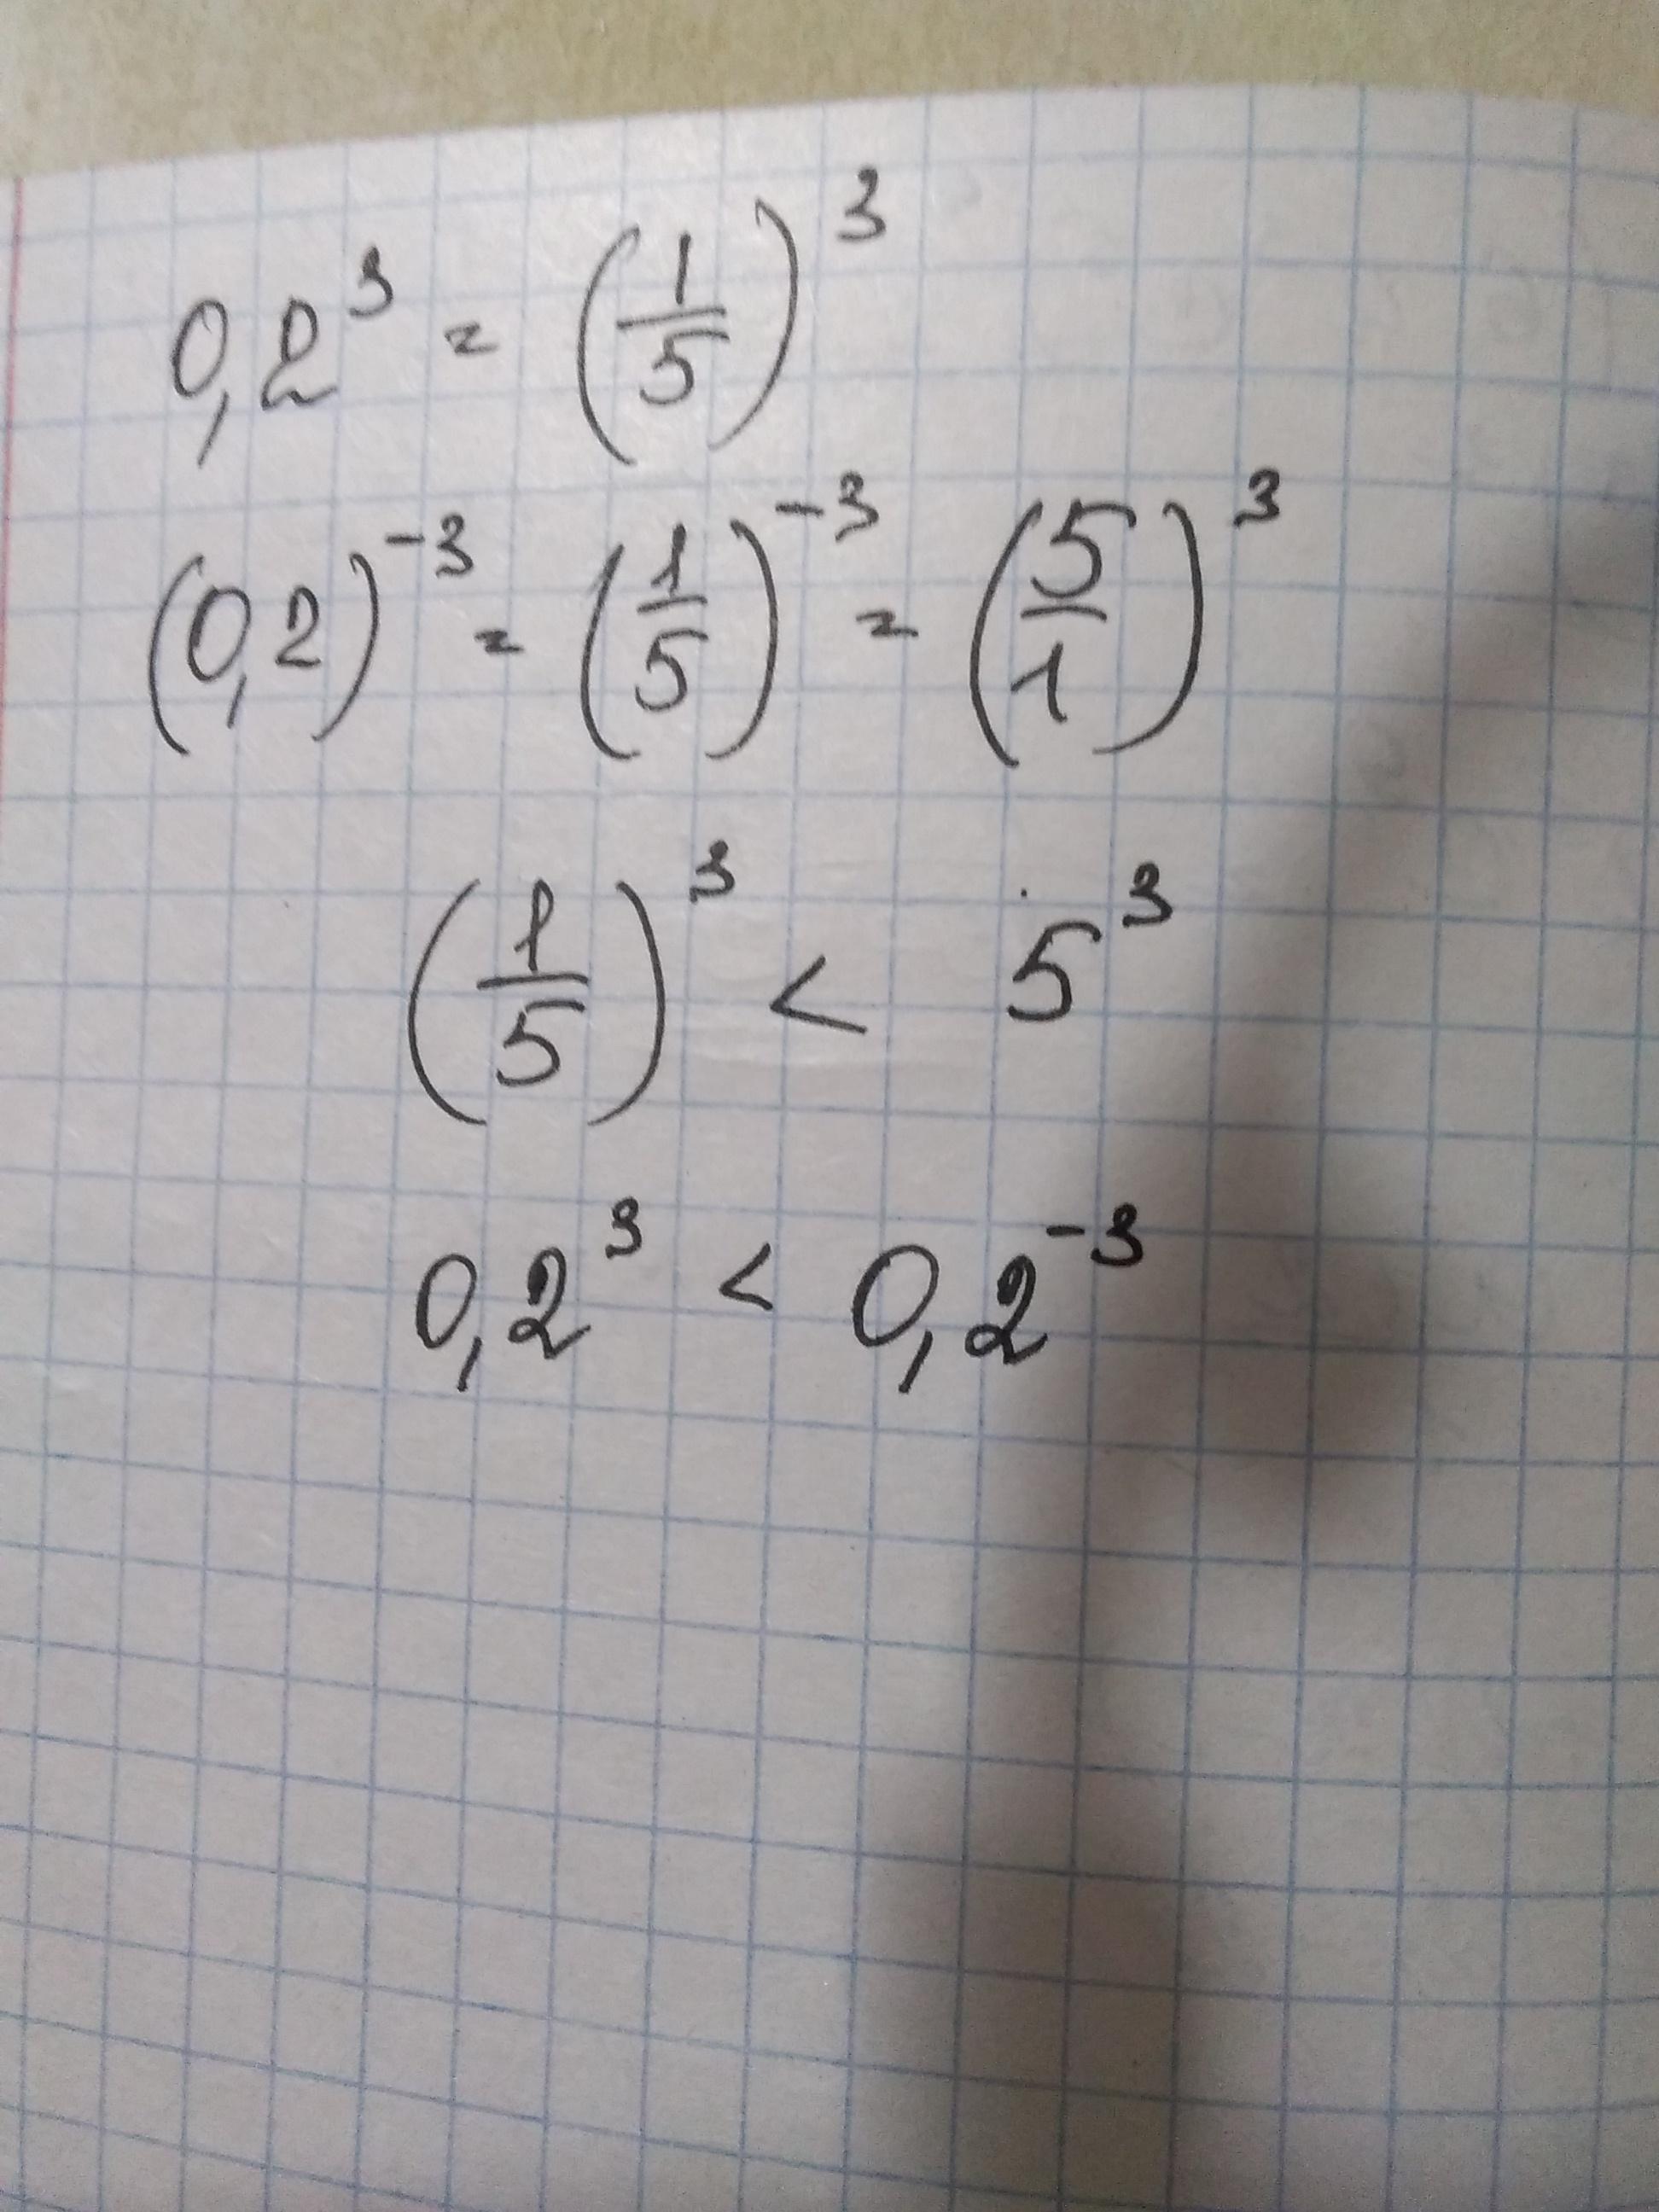 0,2³ = (1/5)³
(0,2)⁻³ = (1/5)⁻³ = (5/1)³
(1/5)³ < 5³
0,2³ < 0,2⁻³